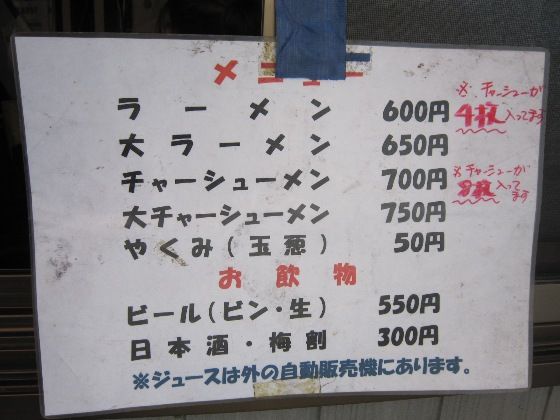 メニュー
ラーメン 600円
※チャーシューが
4枚入ってます
大ラーメン 650円
チャーシューメン 700円
※チャーシューが
入って
ます
大チャーシューメン 750円
やくみ(玉葱) 50円
お飲物
ビール(ビン・生) 550円
日本酒・梅割 300円
※ジュースは外の自動販売機にあります。